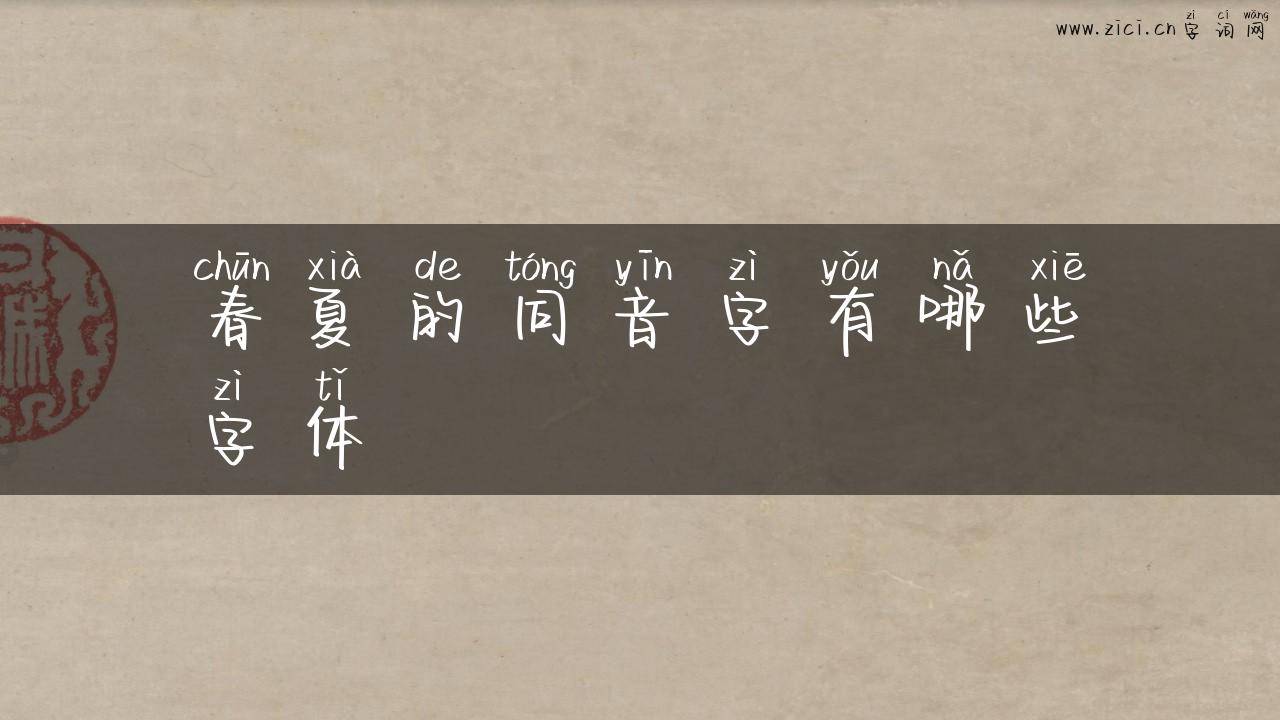 zì cí wǎng
www.zici.cn 字词网
chūn xià de tóng yīn zì yǒu nǎ xiē
春夏的同音字有哪些
zì tǐ
字体